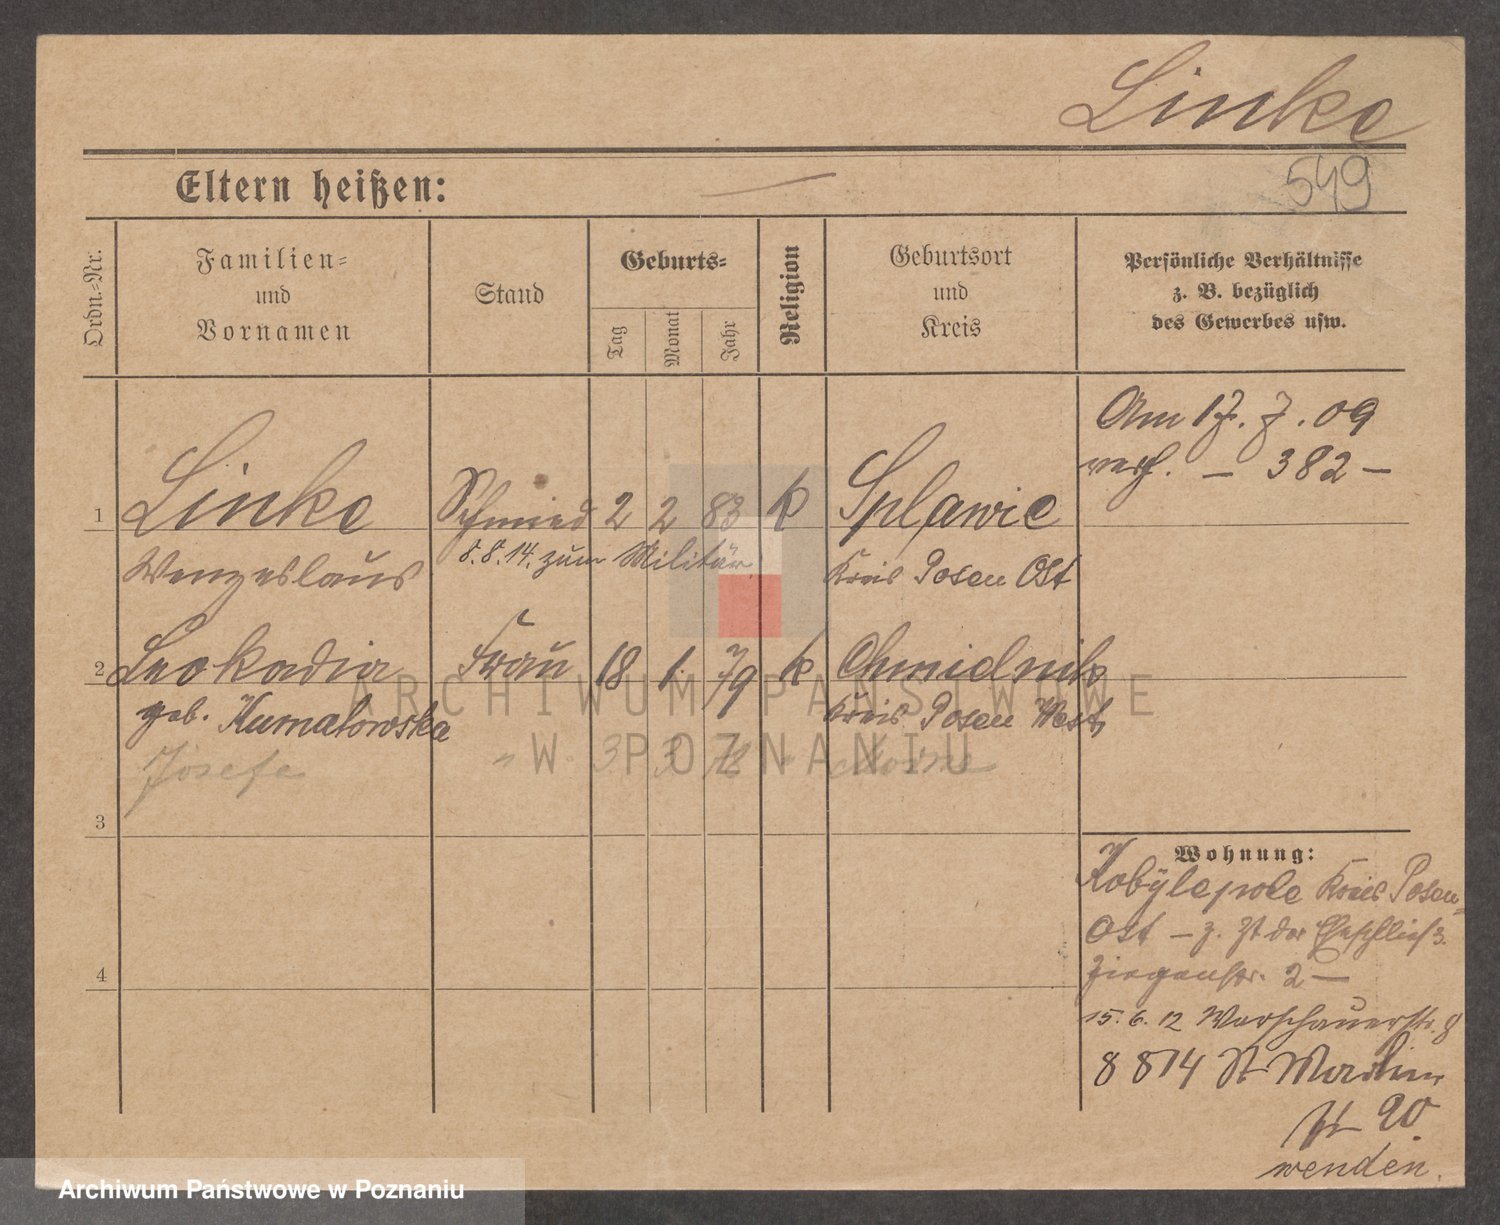 Linke
549
Eltern heißen: —
Ordn.-Nr.
Familien-
und
Vornamen
Stand
Geburts-
Tag
Monat
Jahr
Religion
Geburtsort
und
Kreis
Persönliche Verhältnisse
z. B. bezüglich
des Gewerbes usw.
Am 17. 7. 09
verh. — 382 —
1 Linke Schmied 2 2 83 k Splawie
Wenzeslaus 8.8.14. zum Militär Kreis Posen Ost
2 Leokadia Frau 18 1. 79 k Chmielnik
geb. Kumatowska Kreis Posen West
Josefa " 3 3
3
4
Wohnung:
Kobylepole Kreis Posen-
Ost — z. Zt der Eheschließ.
Ziegenstr. 2 —
15. 6. 12 Warschauerstr. 8
8 8 14 St Martin
Nr 90
wenden.
ARCHIWUM PAŃSTWOWE
W POZNANIU
Archiwum Państwowe w Poznaniu